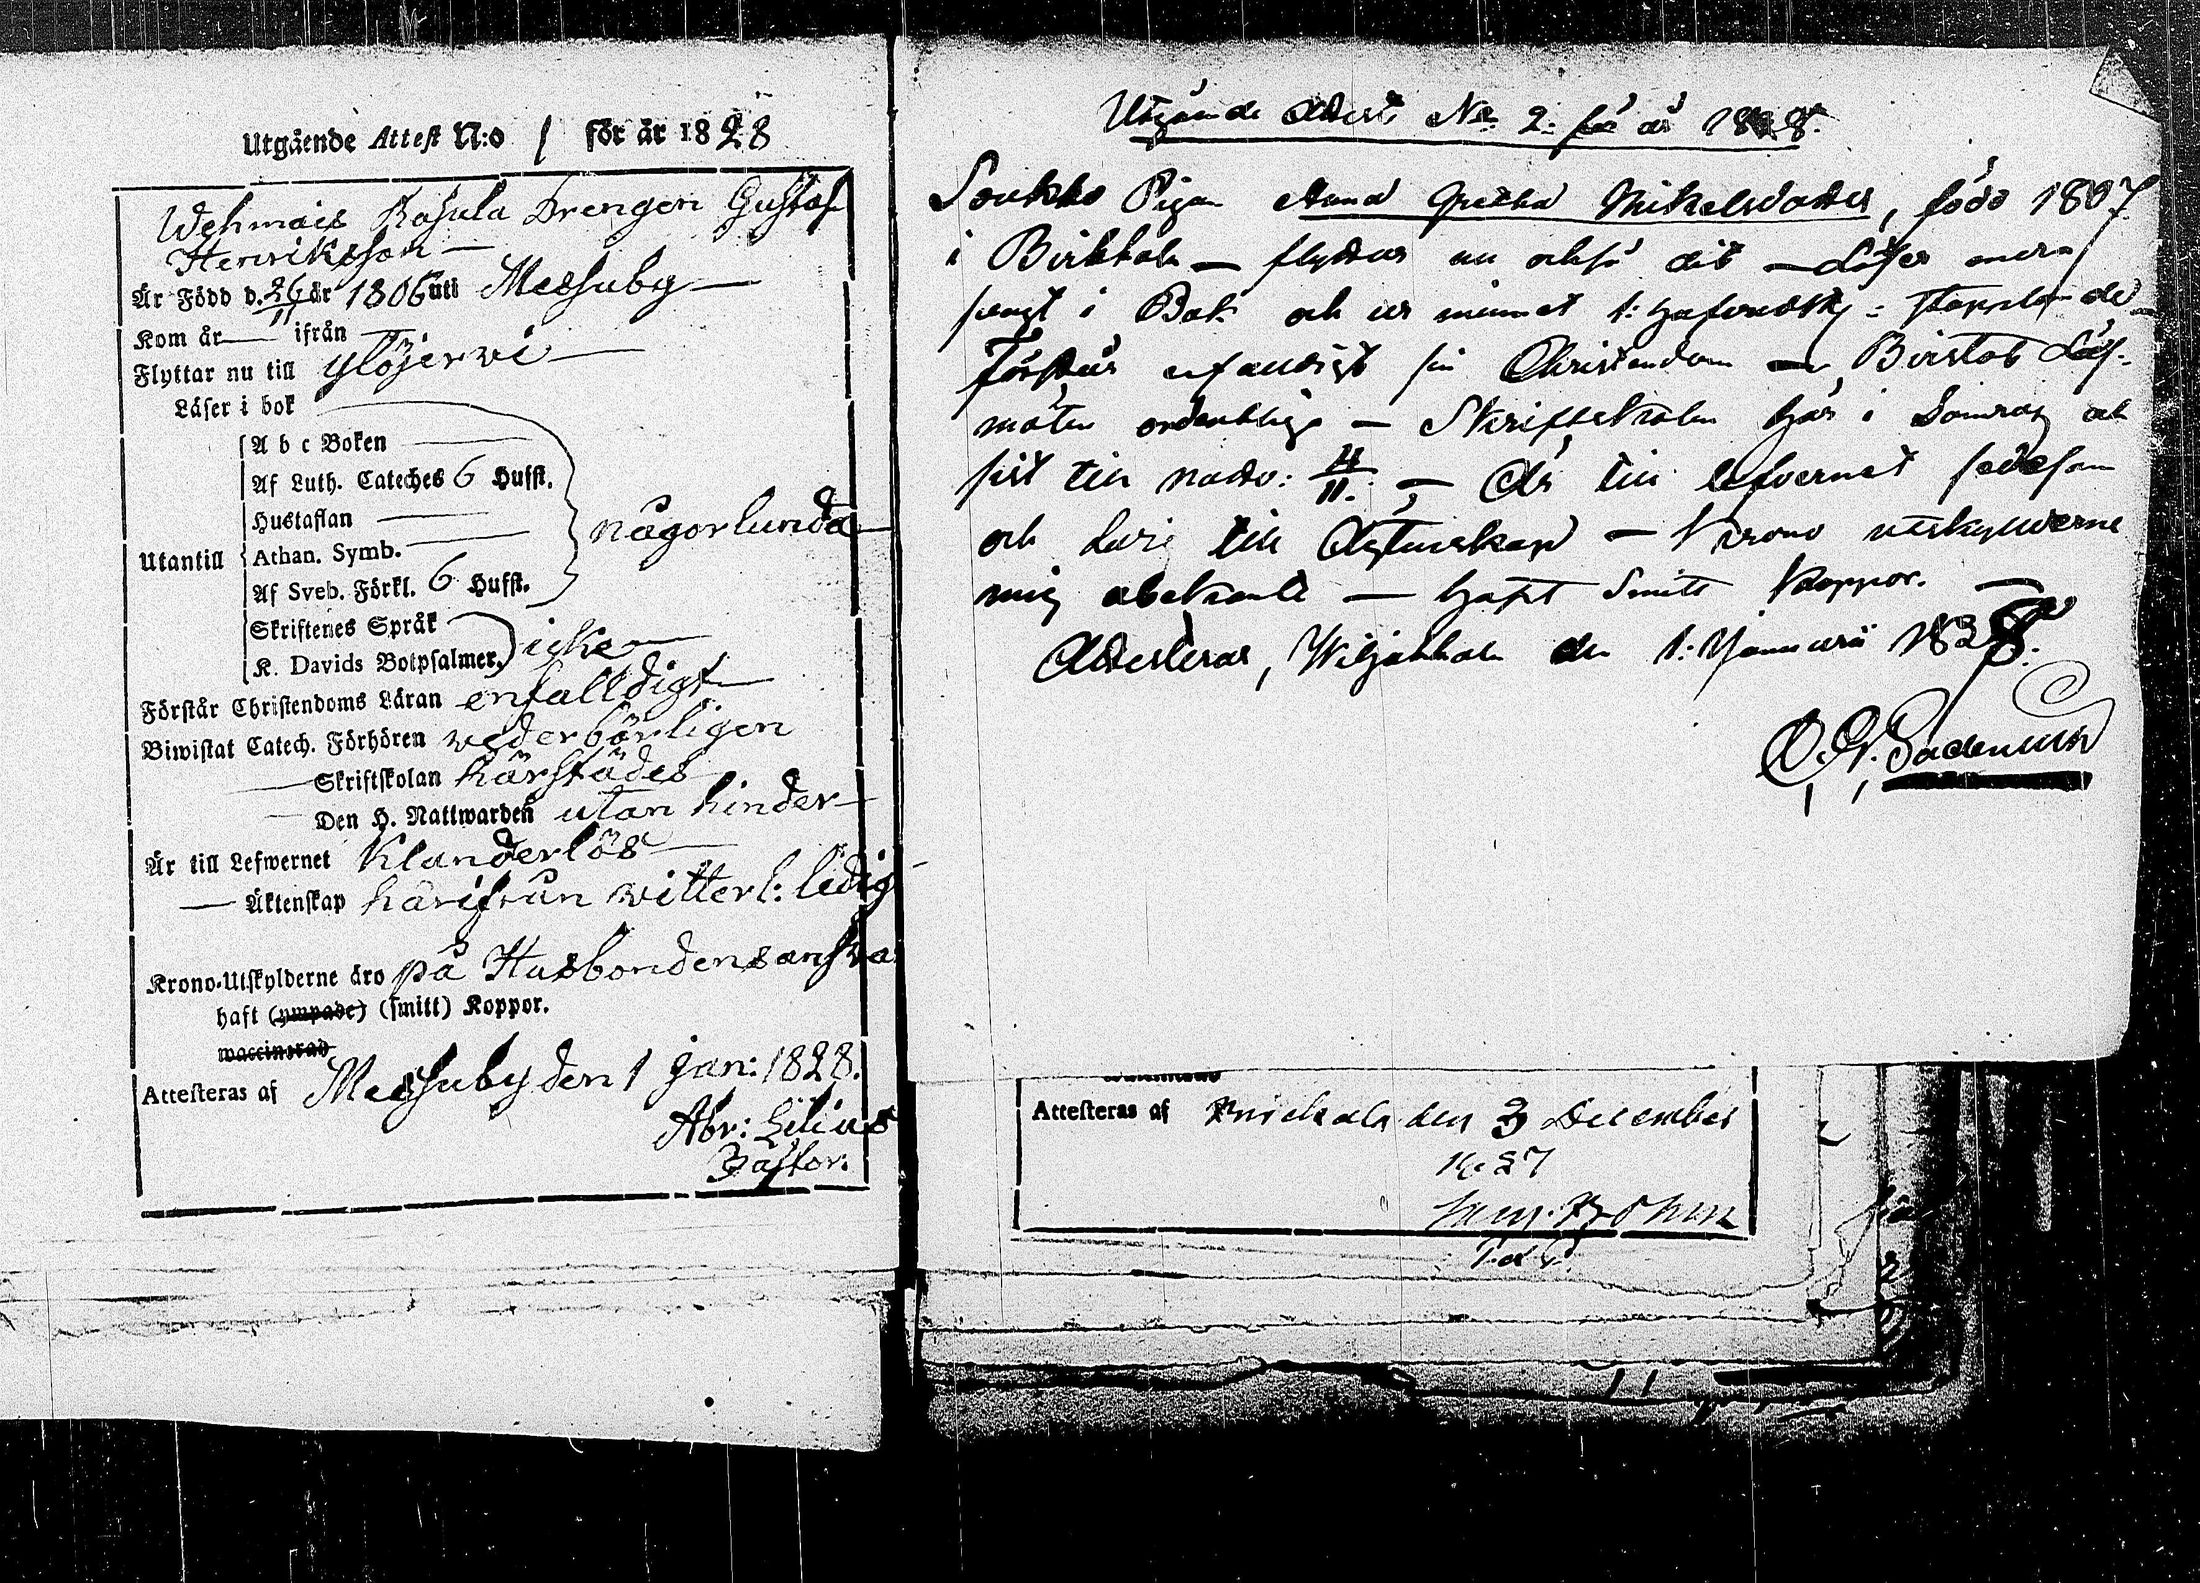 Utgående Attest N:o 1 för år 1828
Wehmais Kosula Drengen Gustaf
Henriksson —
Är Född d. 26/11 år 1806 uti Messuby —
Kom år — ifrån —
Flyttar nu till Ylöjerwi —
Läser i bok
A b c Boken
Af Luth. Cateches 6 Hufst.
Hustaflan
Utantill
Athan. Symb.
Af Sveb. Förkl. 6 Hufst.
någorlunda —
Skriftenes Språk
K. Davids Botpsalmer.
icke —
Förstår Christendoms Läran enfalldigt —
Biwistat Catech. Förhören wederbörligen
— Skriftskolan härstädes
— Den H. Nattwarden utan hinder —
Är till Lefwernet Klanderlös —
— Äktenskap härifrån witterl: ledig
Krono-Utskylderne äro på Husbondens answa
haft (ympade) (smitt) Koppor.
waccinerad
Attesteras af Messuby den 1 Jan: 1828.
Abr: Lilius
Pastor.
Utgående Attest No 2. för år 1828.
Soukko Pigan Anna Greta Mikelsdotter, född 1807
i Birkkala — flyttar nu också dit — Läser
i Bok och ur minnet
Förstår enfaldigt sin Christendom — Bivistat Läs-
möten ordentlig — Skriftskolan här i Somras och
sist till nattv: 11. — Är till lefvernet sedesam
och till Ägtenskap — Krono utskylderne
mig obekante — haft Smitt Koppor. —
Attesteras, Wiljakkala den 1: Januarii 1828.
Attesteras af den 3 December
1827